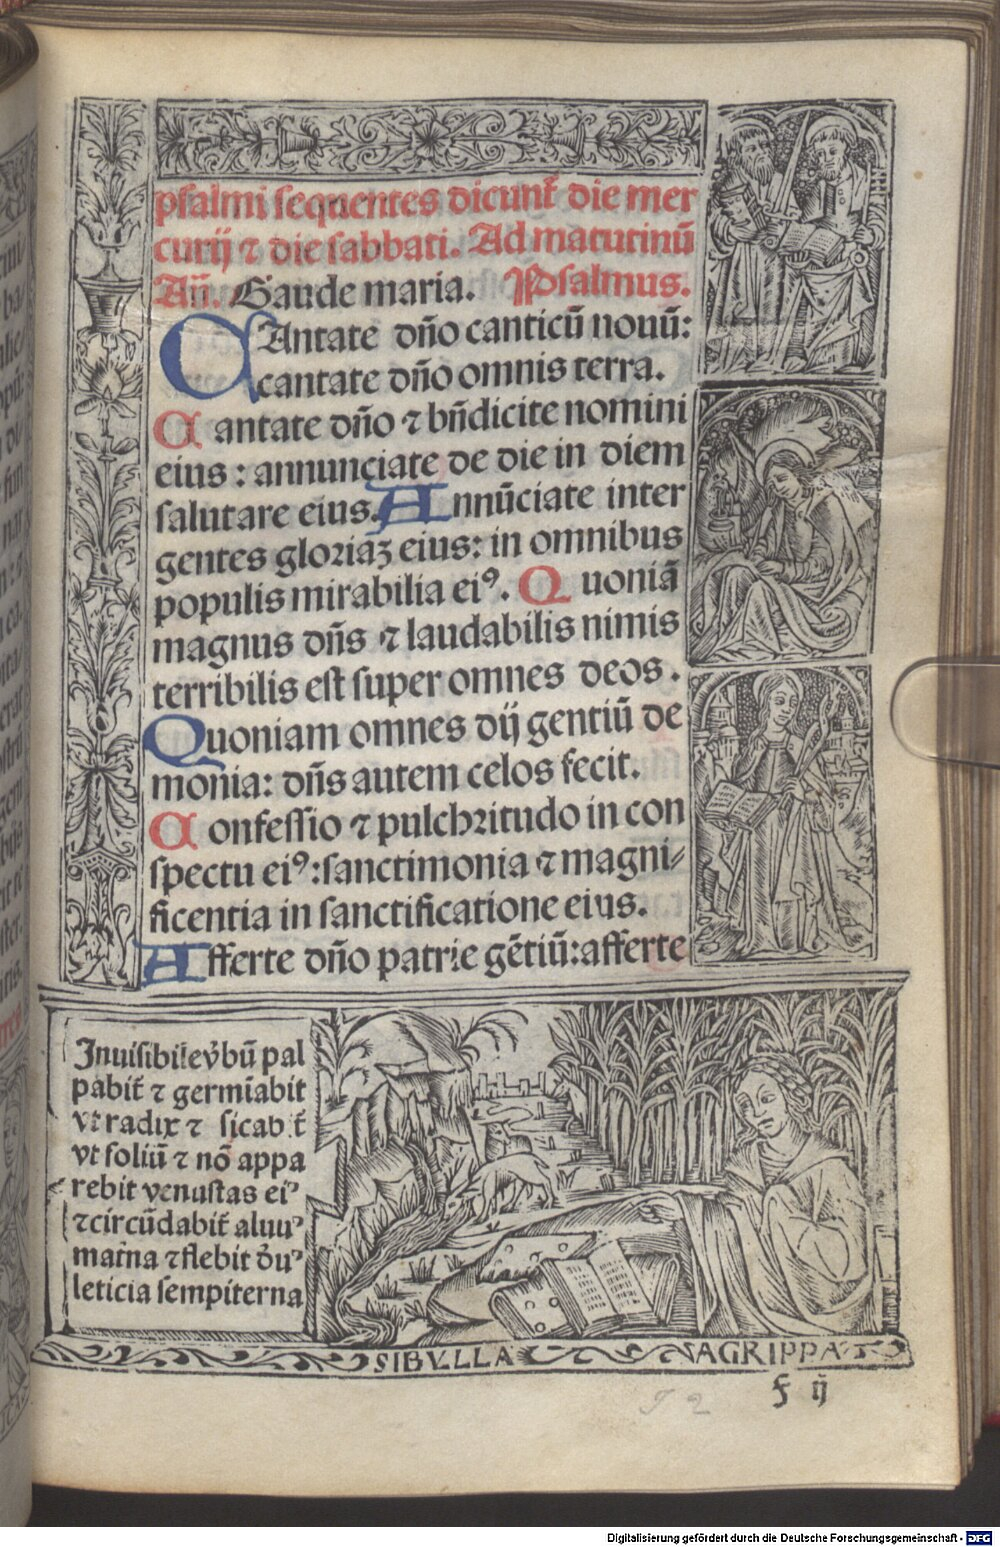 psalmi sequentes dicunt̃ die mer
curij ⁊ die sabbati. Ad matutinũ
Añ. Gaude maria. Psalmus.
CAntate dño canticũ nouũ:
cantate dño omnis terra.
C antate dño ⁊ bñdicite nomini
eius : annunciate de die in diem
salutare eius. A nnũciate inter
gentes gloriaꝫ eius: in omnibus
populis mirabilia eiꝰ. Q uoniã
magnus dñs ⁊ laudabilis nimis
terribilis est super omnes deos .
Quoniam omnes dij gentiũ de
monia: dñs autem celos fecit.
C onfessio ⁊ pulchritudo in con
spectu eiꝰ: sanctimonia ⁊ magni⸗
ficentia in sanctificatione eius.
Afferte dño patrie gẽtiũ: afferte
Inuisibile v̾bũ pal
pabit̃ ⁊ germĩabit
vt radix ⁊ sicab t̃
vt foliũ ⁊ nõ appa
rebit venustas eiꝰ
⁊circũdabit̃ aluuꝰ
mat̃na ⁊flebit
leticia sempiterna
SIBVLLA AGRIPPA
f ij
Digitalisierung gefördert durch die Deutsche Forschungsgemeinschaft - DFG